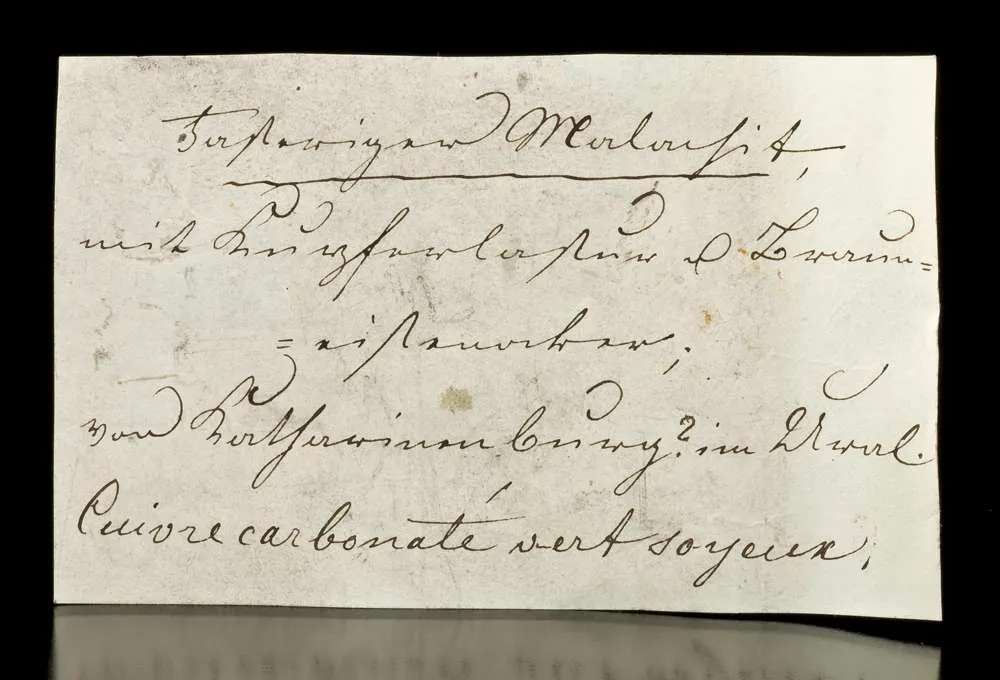 Fasriger Malachit,
mit Kupferlasur u Braun=
=eisenocker,
von Katharinenburg? im Ural.
Cuivre carbonaté vert soyeux,